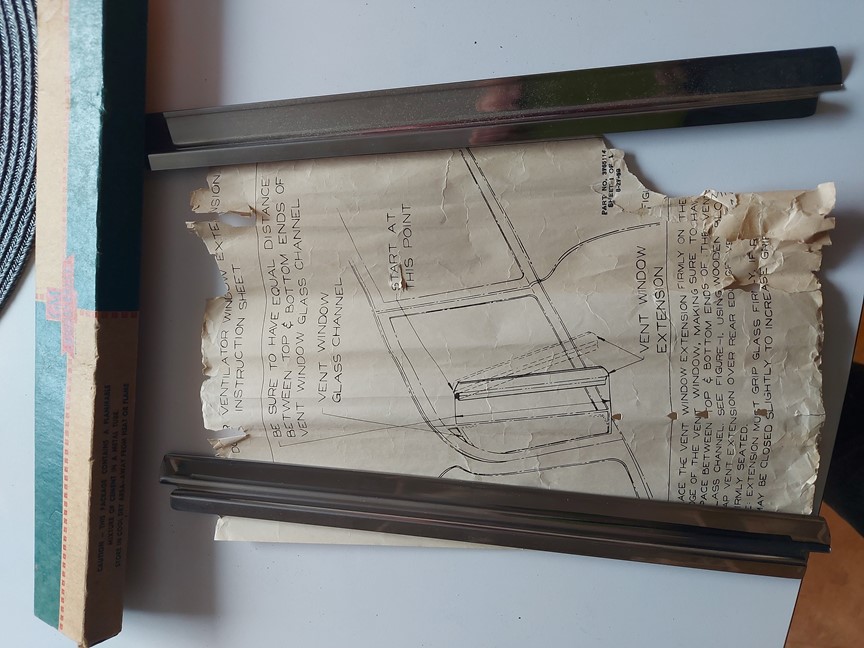 VENTILATOR WINDOW EXTENSION
INSTRUCTION SHEET
BE SURE TO HAVE EQUAL DISTANCE
BETWEEN TOP & BOTTOM ENDS OF
VENT WINDOW GLASS CHANNEL
VENT WINDOW
GLASS CHANNEL
START AT
THIS POINT
PART NO.
SHEET 1 OF 1
FIG
VENT WINDOW
EXTENSION
ACE THE VENT WINDOW EXTENSION FIRMLY ON THE
GE OF THE VENT WINDOW, MAKING SURE TO HAV
PACE BETWEEN TOP & BOTTOM ENDS OF THE VEN
LASS CHANNEL. SEE FIGURE-1, USING WOODEN
AP VENT EXTENSION OVER REAR
IRMLY SEATED.
E: EXTENSION MUST GRIP GLASS FIRMLY. IF
MAY BE CLOSED SLIGHTLY TO INCREASE GRIP
CAUTION - THIS PACKAGE CONTAINS A FLAMMABLE
MIXTURE OF CEMENT IN A METAL TUBE.
STORE IN COOL DRY AREA AWAY FROM HEAT OR FLAME